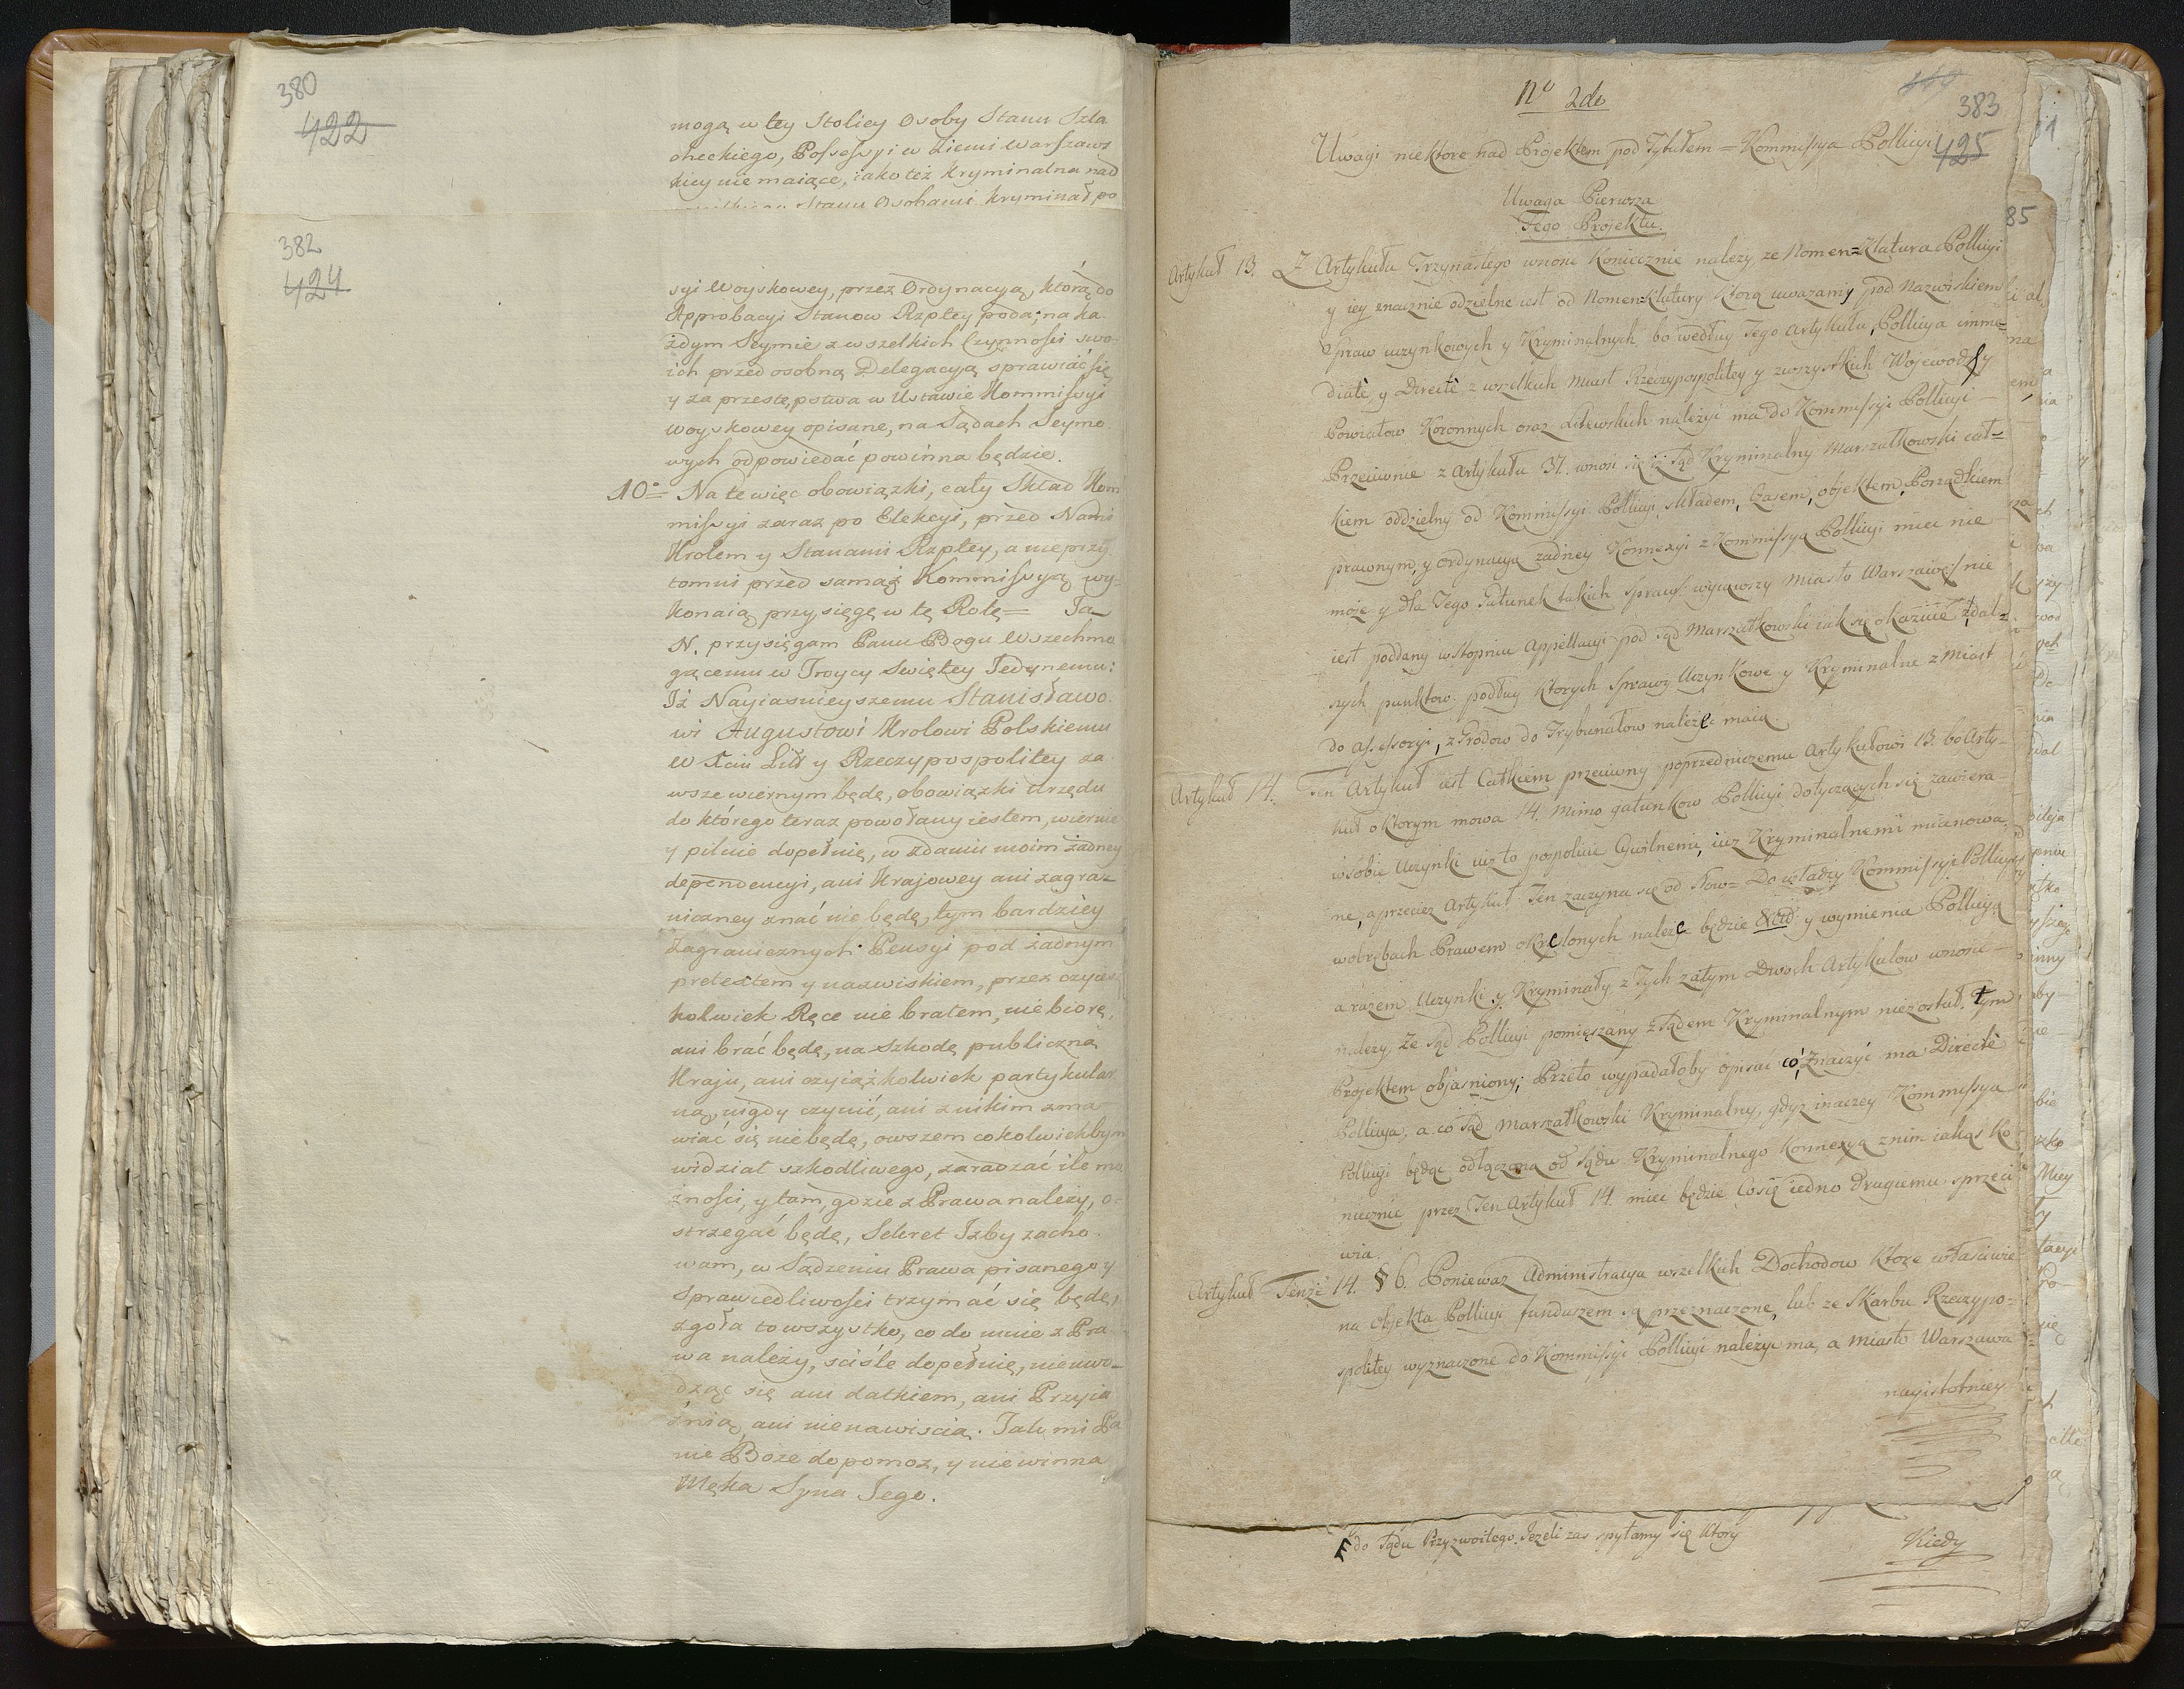 380
422
mogą w tey Stolicy Osoby Stanu Szla
checkiego, Possessyi w Ziemi Warszaws
kiey nie maiące, iako też kryminalna nad
Stanu Osobami kryminał po
382
424
syi Woyskowey, przez Ordynacyą, którą do
Approbacyi Stanow Rzpltey poda; na ka
żdym Seymie z wszelkich Czynności swo
ich przed osobną Delegacyą sprawiać się
y za przestępstwa w Ustawie Kommissyi
Woyskowey opisane, na Sądach Seymo
wych odpowiedać powinna będzie.
10° = Na te więc obowiązki, cały Skład Kom
missyi zaraz po Elekcyi, przed Nami
Krolem y Stanami Rzpltey, a nieprzy
tomni przed samąż Kommissyią wy-
konaią przysięgę w tę Rotę = Ja
N. przysięgam Panu Bogu Wszechmo
gącemu w Troycy Swiętey Jedynemu:
Iż Nayiasnieyszemu Stanisławo
wi Augustowi Krolowi Polskiemu
W Xciu Litt y Rzeczypospolitey za
wsze wiernym będę, obowiązki Urzędu
do którego teraz powołany iestem, wiernie
y pilnie dopełnię, w zdaniu moim żadney
dependencyi, ani Krajowey ani zagra-
niczney znać nie będę, tym bardziey
Zagranicznych Pensyi pod żadnym
pretextem y nazwiskiem, przez czyie
kolwiek Ręce nie brałem, nie biorę,
ani brać będę, na szkodę publiczną
Kraju, ani czyiążkolwiek partykular
ną, nigdy czynić, ani z nikim zma
wiać się nie będę, owszem cokolwiekbym
widział szkodliwego, zaradzać ile mo
żności, y tam, gdzie z Prawa należy, o-
strzegać będę, Sekret Izby zacho
wam, w Sądzeniu Prawa pisanego y
Sprawiedliwości trzymać się będę,
zgoła to wszystko, co do mnie z Pra
wa należy, sciśle dopełnię, nie uwo-
dząc się ani datkiem, ani Przyia
źnią, ani nienawiscią. Tak mi Pa
nie Boże dopomoż, y niewinna
Męka Syna Jego.
N° 2do
383
425
Uwagi niektore nad Projektem pod Tytułem = Kommissya Policyi
Uwaga Pierwsza
Tego Projektu.
85
Artykuł 13. Z Artykułu Trzynastego wnosić koniecznie należy, ze Nomen=klatura Policyi
y iey znacznie odzielne iest od Nomenklatury ktorą uwazamy pod Nazwiskiem
Spraw uczynkowych y Kryminalnych, bo według Tego Artykułu, Policya imme=
diatè y Directè z wszelkich Miast Rzeczypospolitey y z wszystkich Wojewodztw y
Powiatow Koronnych oraz Litewskich należyć ma do Kommissyi Policyi
Przeciwnie z Artykułu 37. wnosi się iż Sąd Kryminalny Marszałkowski cał=
kiem oddzielny od Kommissyi Policyi, składem, Czasem, objektem, Porządkiem
prawnym, y Ordynacyą zadney Konnexyi z Kommissyą Policyi miec nie
moze y dla Tego Gatunek takich spraw wyiąwszy Miasto Warszawę nie
iest poddany w stopniu Appellacyi pod Sąd Marszałkowski iak się okazuie z dal=
szych punktow podług ktorych Sprawy Uczynkowe y Kryminalne z Miast
do Assessoryi, z Grodow do Trybunałow należeć maią.
Artykuł 14. Ten Artykuł iest Całkiem przeciwny poprzedniczemu Artykułowi 13. bo Arty-
kuł o ktorym mowa 14. Mimo gatunkow Policyi dotyczących się zawiera
w sobie Uczynki iuż to pospolicie Cywilnemi, iuż Kryminalnemi mianowa
ne, a przeciez Artykuł Ten zaczyna się od słow = Do władzy Kommissyi Policyi
w obrębach Prawem okreslonych należec będzie &cta y wymienia Policyą
a razem Uczynki y Kryminały, z Tych zatym Dwoch Artykułow wnosić
należy, Ze Sąd Policyi pomięszany z Sądem Kryminalnym nie został Tym
Projektem objasniony; Przeto wypadałoby opisać co Znaczyć ma Directè
Policya, a co Sąd Marszałkowski Kryminalny, gdyz inaczey Kommissya
Policyi będąc odłączona od Sądu Kryminalnego Konnexyą z nim iakąs ko
niecznie przez Ten Artykuł 14. miec będzie Co się iedno drugiemu sprzeci
wia.
Artykuł Tenże 14. § 6. Poniewaz Administracya wszelkich Dochodow ktore własciwie
na objekta Policyi funduszem są przeznaczone, lub ze Skarbu Rzeczypo=
spolitey wyznaczone do Kommissyi Policyi należyć ma, a miasto Warszawa
nayistotniey
do Sądu Przyzwoitego. Jezeli zas spytamy się ktory
Kiedy